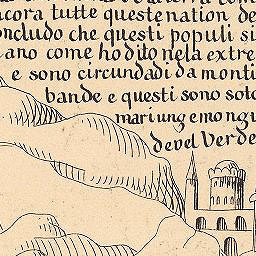 cora tutte queste nation de
oncludo che questi populi si
ano come ho dito nela extre
e sono circundadi da monti
bande e questi sono soto
mari ung e mongu
de vel Verde